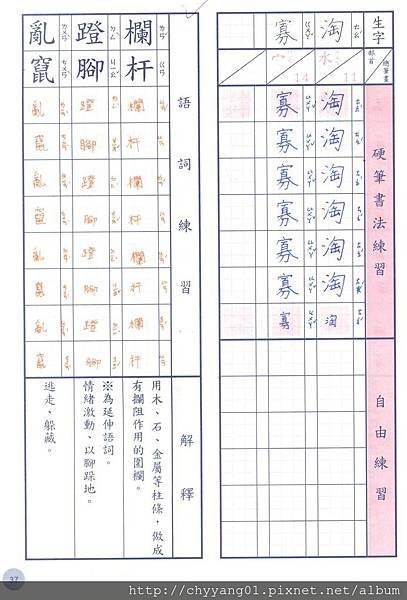 生字
部首
總筆畫
硬筆書法練習
自由練習
淘 ㄊㄠˊ
水 11
淘淘淘淘淘淘淘淘
寡 ㄍㄨㄚˇ
宀 14
寡寡寡寡寡寡寡寡
語詞練習
解釋
欄杆 ㄌㄢˊ ㄍㄢ
欄杆欄杆欄杆欄杆
用木、石、金屬等柱條，做成
有攔阻作用的圍欄。
蹬腳 ㄉㄥ ㄐㄧㄠˇ
蹬腳蹬腳蹬腳蹬腳
※為延伸語詞。
情緒激動、以腳跺地。
亂竄 ㄌㄨㄢˋ ㄘㄨㄢˋ
亂竄亂竄亂竄亂竄
逃走、躲藏。
37
http://chyyang01.pixnet.net/album